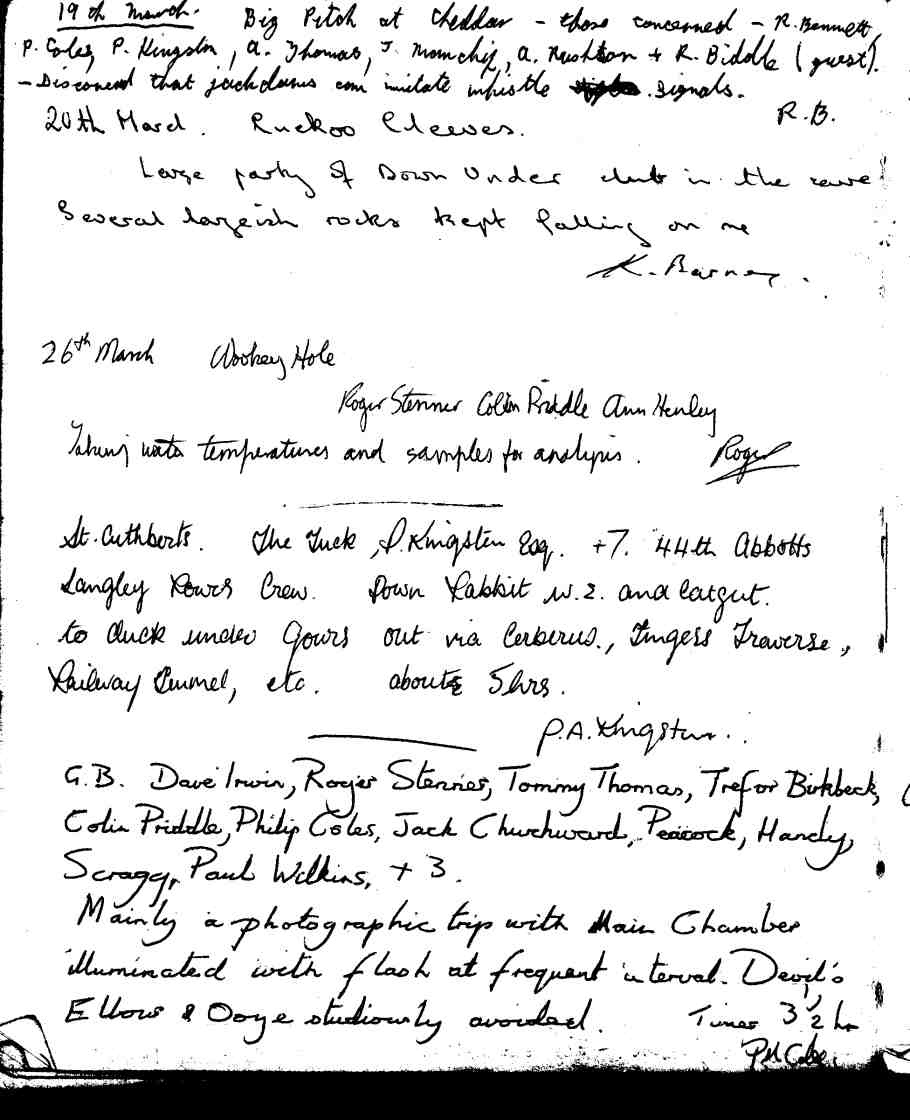 19th March. Big Pitch at Cheddar - those concerned - R. Bennett,
P. Coles, P. Kingston, A. Thomas, J. A. + R. Biddle (guest).
- Discovered that jackdaws can imitate whistle signals.
R.B.
20th March. Ruckoo Cleeves.
Large party of Down Under club in the cave
Several largeish rocks kept falling on me
K. Barney.
26th March Wookey Hole
Roger Stenner Colin Priddle Ann Henley
Taking water temperatures and samples for analysis. Roger
St. Cuthberts. The Tuck, P. Kingston Esq. +7. 44th Abbotts
Langley Crew. Down Rabbit w.2. and Catgut.
to duck under Gours out via Cerberus., Fingers Traverse,
Railway Tunnel, etc. about 5hrs.
P.A. Kingston.
G.B. Dave Irwin, Roger Stenner, Tommy Thomas, Trefor Birkbeck,
Colin Priddle, Philip Coles, Jack Churchward, Peacock, Handy,
Scragg, Paul Wilkins, + 3.
Mainly a photographic trip with Main Chamber
illuminated with flash at frequent interval. Devil's
Elbow & Ooze studiously avoided. Times 3 1/2 hr
PM Coles